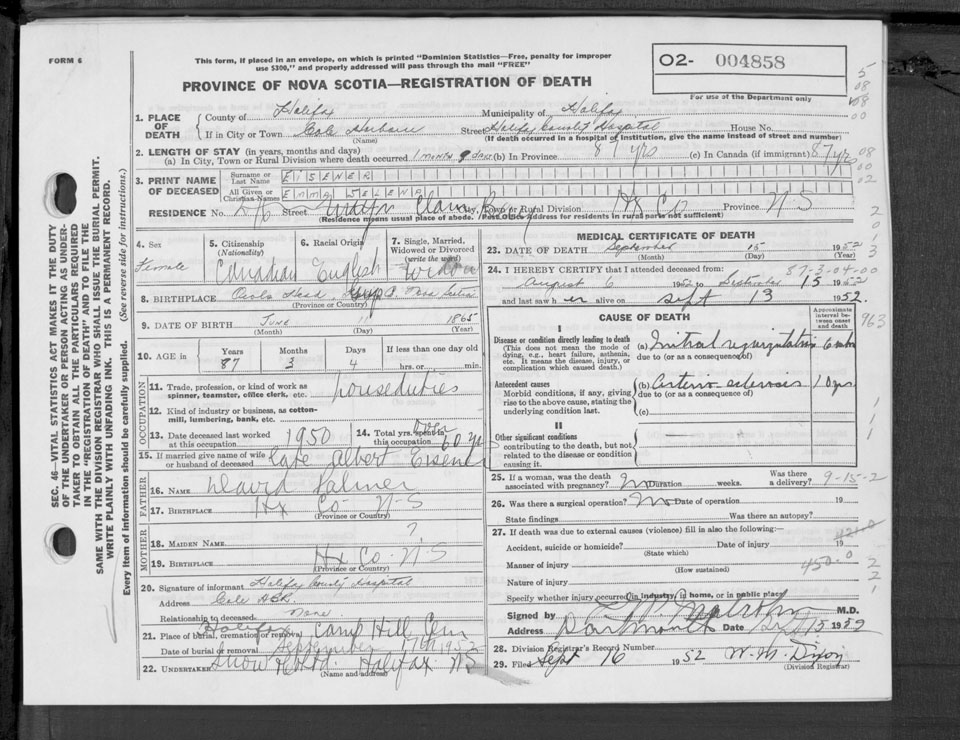 FORM 6
This form, if placed in an envelope, on which is printed "Dominion Statistics—Free, penalty for improper
use $300," and properly addressed will pass through the mail "FREE"
PROVINCE OF NOVA SCOTIA—REGISTRATION OF DEATH
O2- 004858
For use of the Department only
1. PLACE OF DEATH
County of Halifax Municipality of Halifax
If in City or Town Cole Harbour Street Halifax County Hospital House No.
(Name) (If death occurred in a hospital or institution, give the name instead of street and number)
2. LENGTH OF STAY (in years, months and days)
(a) In City, Town or Rural Division where death occurred 1 month 9 days (b) In Province 87 yrs (c) In Canada (if immigrant) 87 yrs
3. PRINT NAME OF DECEASED
Surname or Last Name EISENER
All Given or Christian Names EMMA SELENA
RESIDENCE No. Street Clam Bay City, Town or Rural Division Hx Co Province N-S
(Residence means usual place of abode. Post office address for residents in rural parts not sufficient)
4. Sex Female
5. Citizenship (Nationality) Canadian
6. Racial Origin English
7. Single, Married, Widowed or Divorced (write the word) Widow
8. BIRTHPLACE Owls Head, Nova Scotia
(Province or Country)
9. DATE OF BIRTH June 11 1865
(Month) (Day) (Year)
10. AGE in Years 87 Months 3 Days 4 If less than one day old hrs. or min.
OCCUPATION
11. Trade, profession, or kind of work as spinner, teamster, office clerk, etc. houseduties
12. Kind of industry or business, as cotton-mill, lumbering, bank, etc.
13. Date deceased last worked at this occupation 1950
14. Total yrs. spent in this occupation over 60 yrs
15. If married give name of wife or husband of deceased late Albert Eisener
FATHER
16. NAME David Palmer
17. BIRTHPLACE Hx Co N-S
(Province or Country)
MOTHER
18. MAIDEN NAME ?
19. BIRTHPLACE Hx Co. N-S
(Province or Country)
20. Signature of informant Halifax County Hospital
Address Cole HBR
Relationship to deceased none
21. Place of burial, cremation or removal Halifax Camp Hill Cem
Date of burial or removal September 17th 1952
22. UNDERTAKER Snow Halifax NS
(Name and address)
MEDICAL CERTIFICATE OF DEATH
23. DATE OF DEATH September 15 1952
(Month) (Day) (Year)
87-3-04-00
24. I HEREBY CERTIFY that I attended deceased from:
August 6 1952 to September 15 1952
and last saw h er alive on Sept 13 1952.
CAUSE OF DEATH
Approximate interval between onset and death
963
I
Disease or condition directly leading to death
(This does not mean the mode of dying, e.g., heart failure, asthenia, etc. It means the disease, injury, or complication which caused death.)
(a) Mitral regurgitation
due to (or as a consequence of)
Antecedent causes
Morbid conditions, if any, giving rise to the above cause, stating the underlying condition last.
(b) Arterio-sclerosis 10 yrs
due to (or as a consequence of)
(c)
II
Other significant conditions
contributing to the death, but not related to the disease or condition causing it.
25. If a woman, was the death associated with pregnancy? No Duration weeks. Was there a delivery?
9-15-2
26. Was there a surgical operation? No Date of operation 19
State findings Was there an autopsy?
27. If death was due to external causes (violence) fill in also the following:—
Accident, suicide or homicide? Date of injury 19
(State which)
Manner of injury 450-0
(How sustained)
Nature of injury
Specify whether injury occurred in industry, in home, or in public place
Signed by M.D.
Address Dartmouth Date Sept 15 1952
28. Division Registrar's Record Number
29. Filed Sept 16 1952 W. M. Dixon
(Division Registrar)
SEC. 46—VITAL STATISTICS ACT MAKES IT THE DUTY
OF THE UNDERTAKER OR PERSON ACTING AS UNDER-
TAKER TO OBTAIN ALL THE PARTICULARS REQUIRED
IN THE "REGISTRATION OF DEATH" AND TO FILE THE
SAME WITH THE DIVISION REGISTRAR WHO SHALL ISSUE THE BURIAL PERMIT.
WRITE PLAINLY WITH UNFADING INK. THIS IS A PERMANENT RECORD.
Every item of information should be carefully supplied. (See reverse side for instructions.)